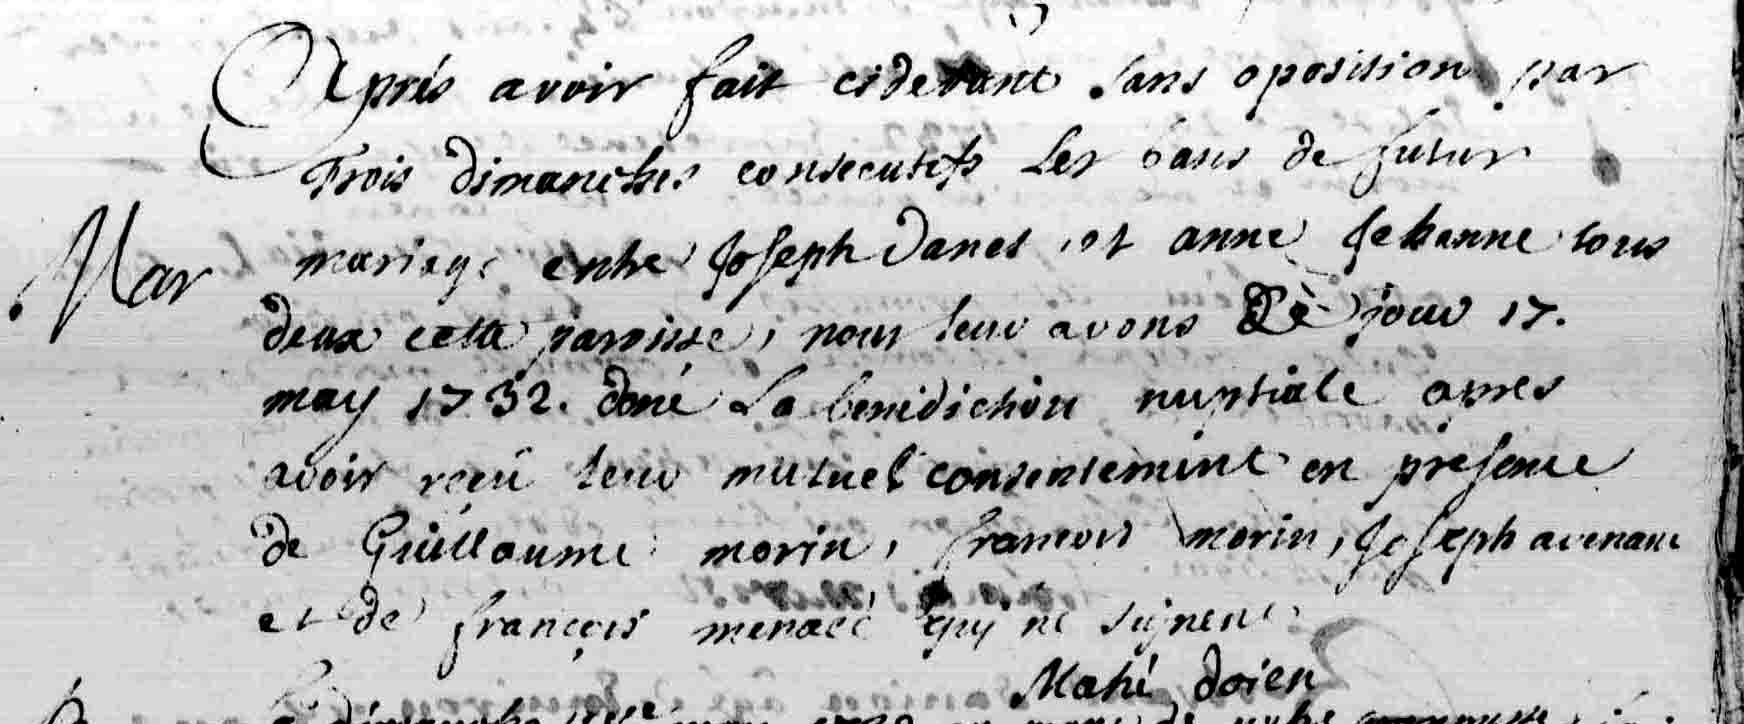 Après avoir fait cidevant sans oposition par
Trois dimanches consecutifs Les bans de futur
Mar mariage entre Joseph Danet et anne Jehanne tous
deux cette paroisse, nous leur avons Cè jour 17.
may 1732. doné La benidiction nuptiale apres
avoir reçu leur mutuel consentement en presence
de Guillaume morin, francois morin, Joseph avenant
et de françois menacé qui ne signent
Mahé doien